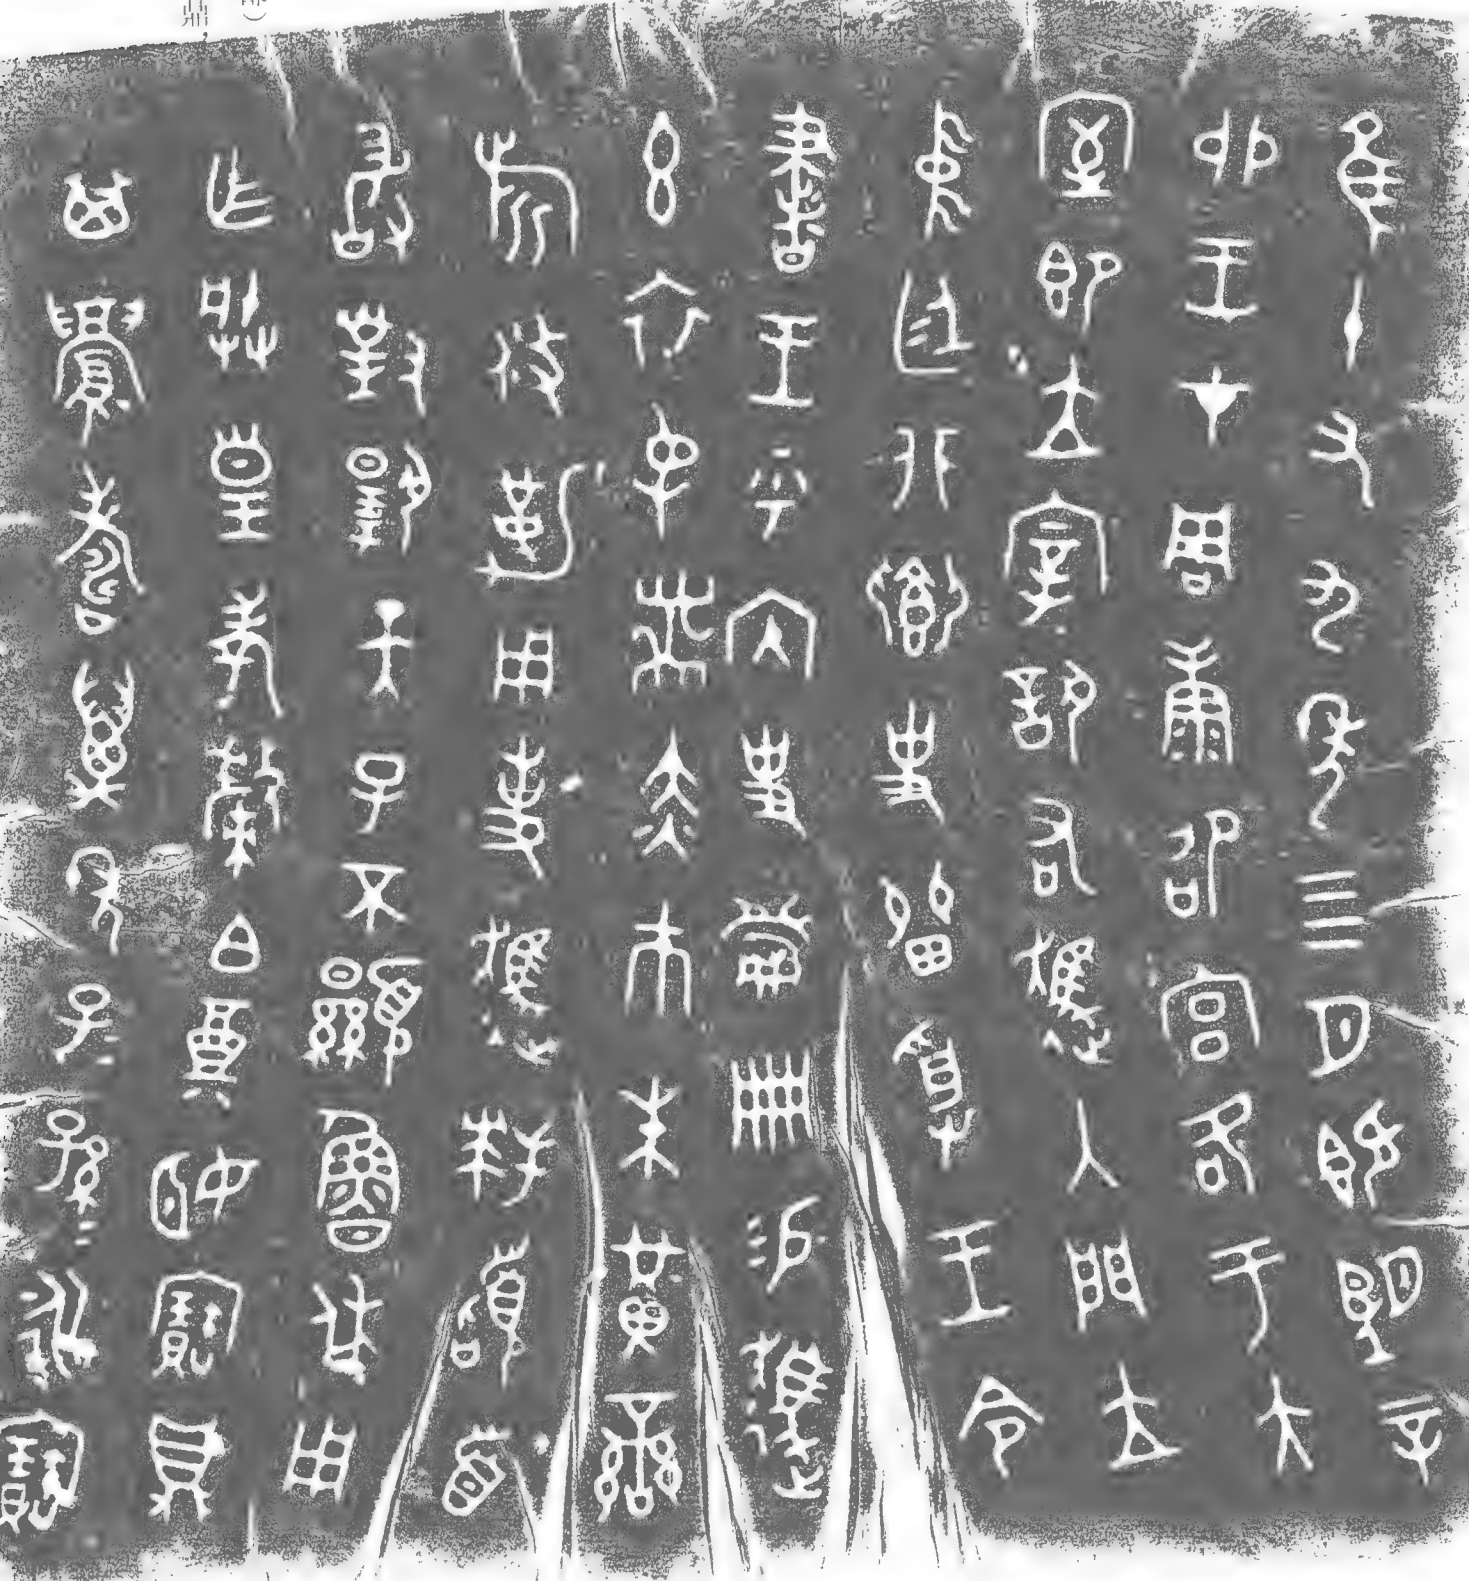 隹十又九年四月既望辛
卯王才周康卲宮各于大
室即立宰訊右趞入門立
中廷北鄉史留受王令
書王乎內史冊易趞
玄衣屯黹赤巿朱黃䜌
旂攸勒用事趞拜𩒨首
敢對揚天子不顯魯休用
乍朕皇考斄白奠姬寶鼎
其眉壽萬年子子孫孫永寶